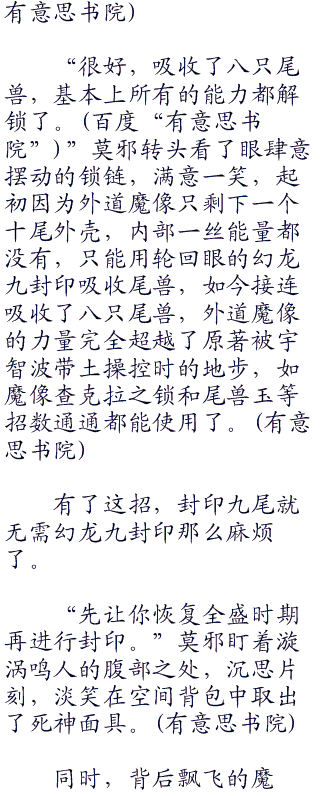 有意思书院)
“很好，吸收了八只尾
兽，基本上所有的能力都解
锁了。(百度“有意思书
院”)”莫邪转头看了眼肆意
摆动的锁链，满意一笑，起
初因为外道魔像只剩下一个
十尾外壳，内部一丝能量都
没有，只能用轮回眼的幻龙
九封印吸收尾兽，如今接连
吸收了八只尾兽，外道魔像
的力量完全超越了原著被宇
智波带土操控时的地步，如
魔像查克拉之锁和尾兽玉等
招数通通都能使用了。(有意
思书院)
有了这招，封印九尾就
无需幻龙九封印那么麻烦
了。
“先让你恢复全盛时期
再进行封印。”莫邪盯着漩
涡鸣人的腹部之处，沉思片
刻，淡笑在空间背包中取出
了死神面具。(有意思书院)
同时，背后飘飞的魔